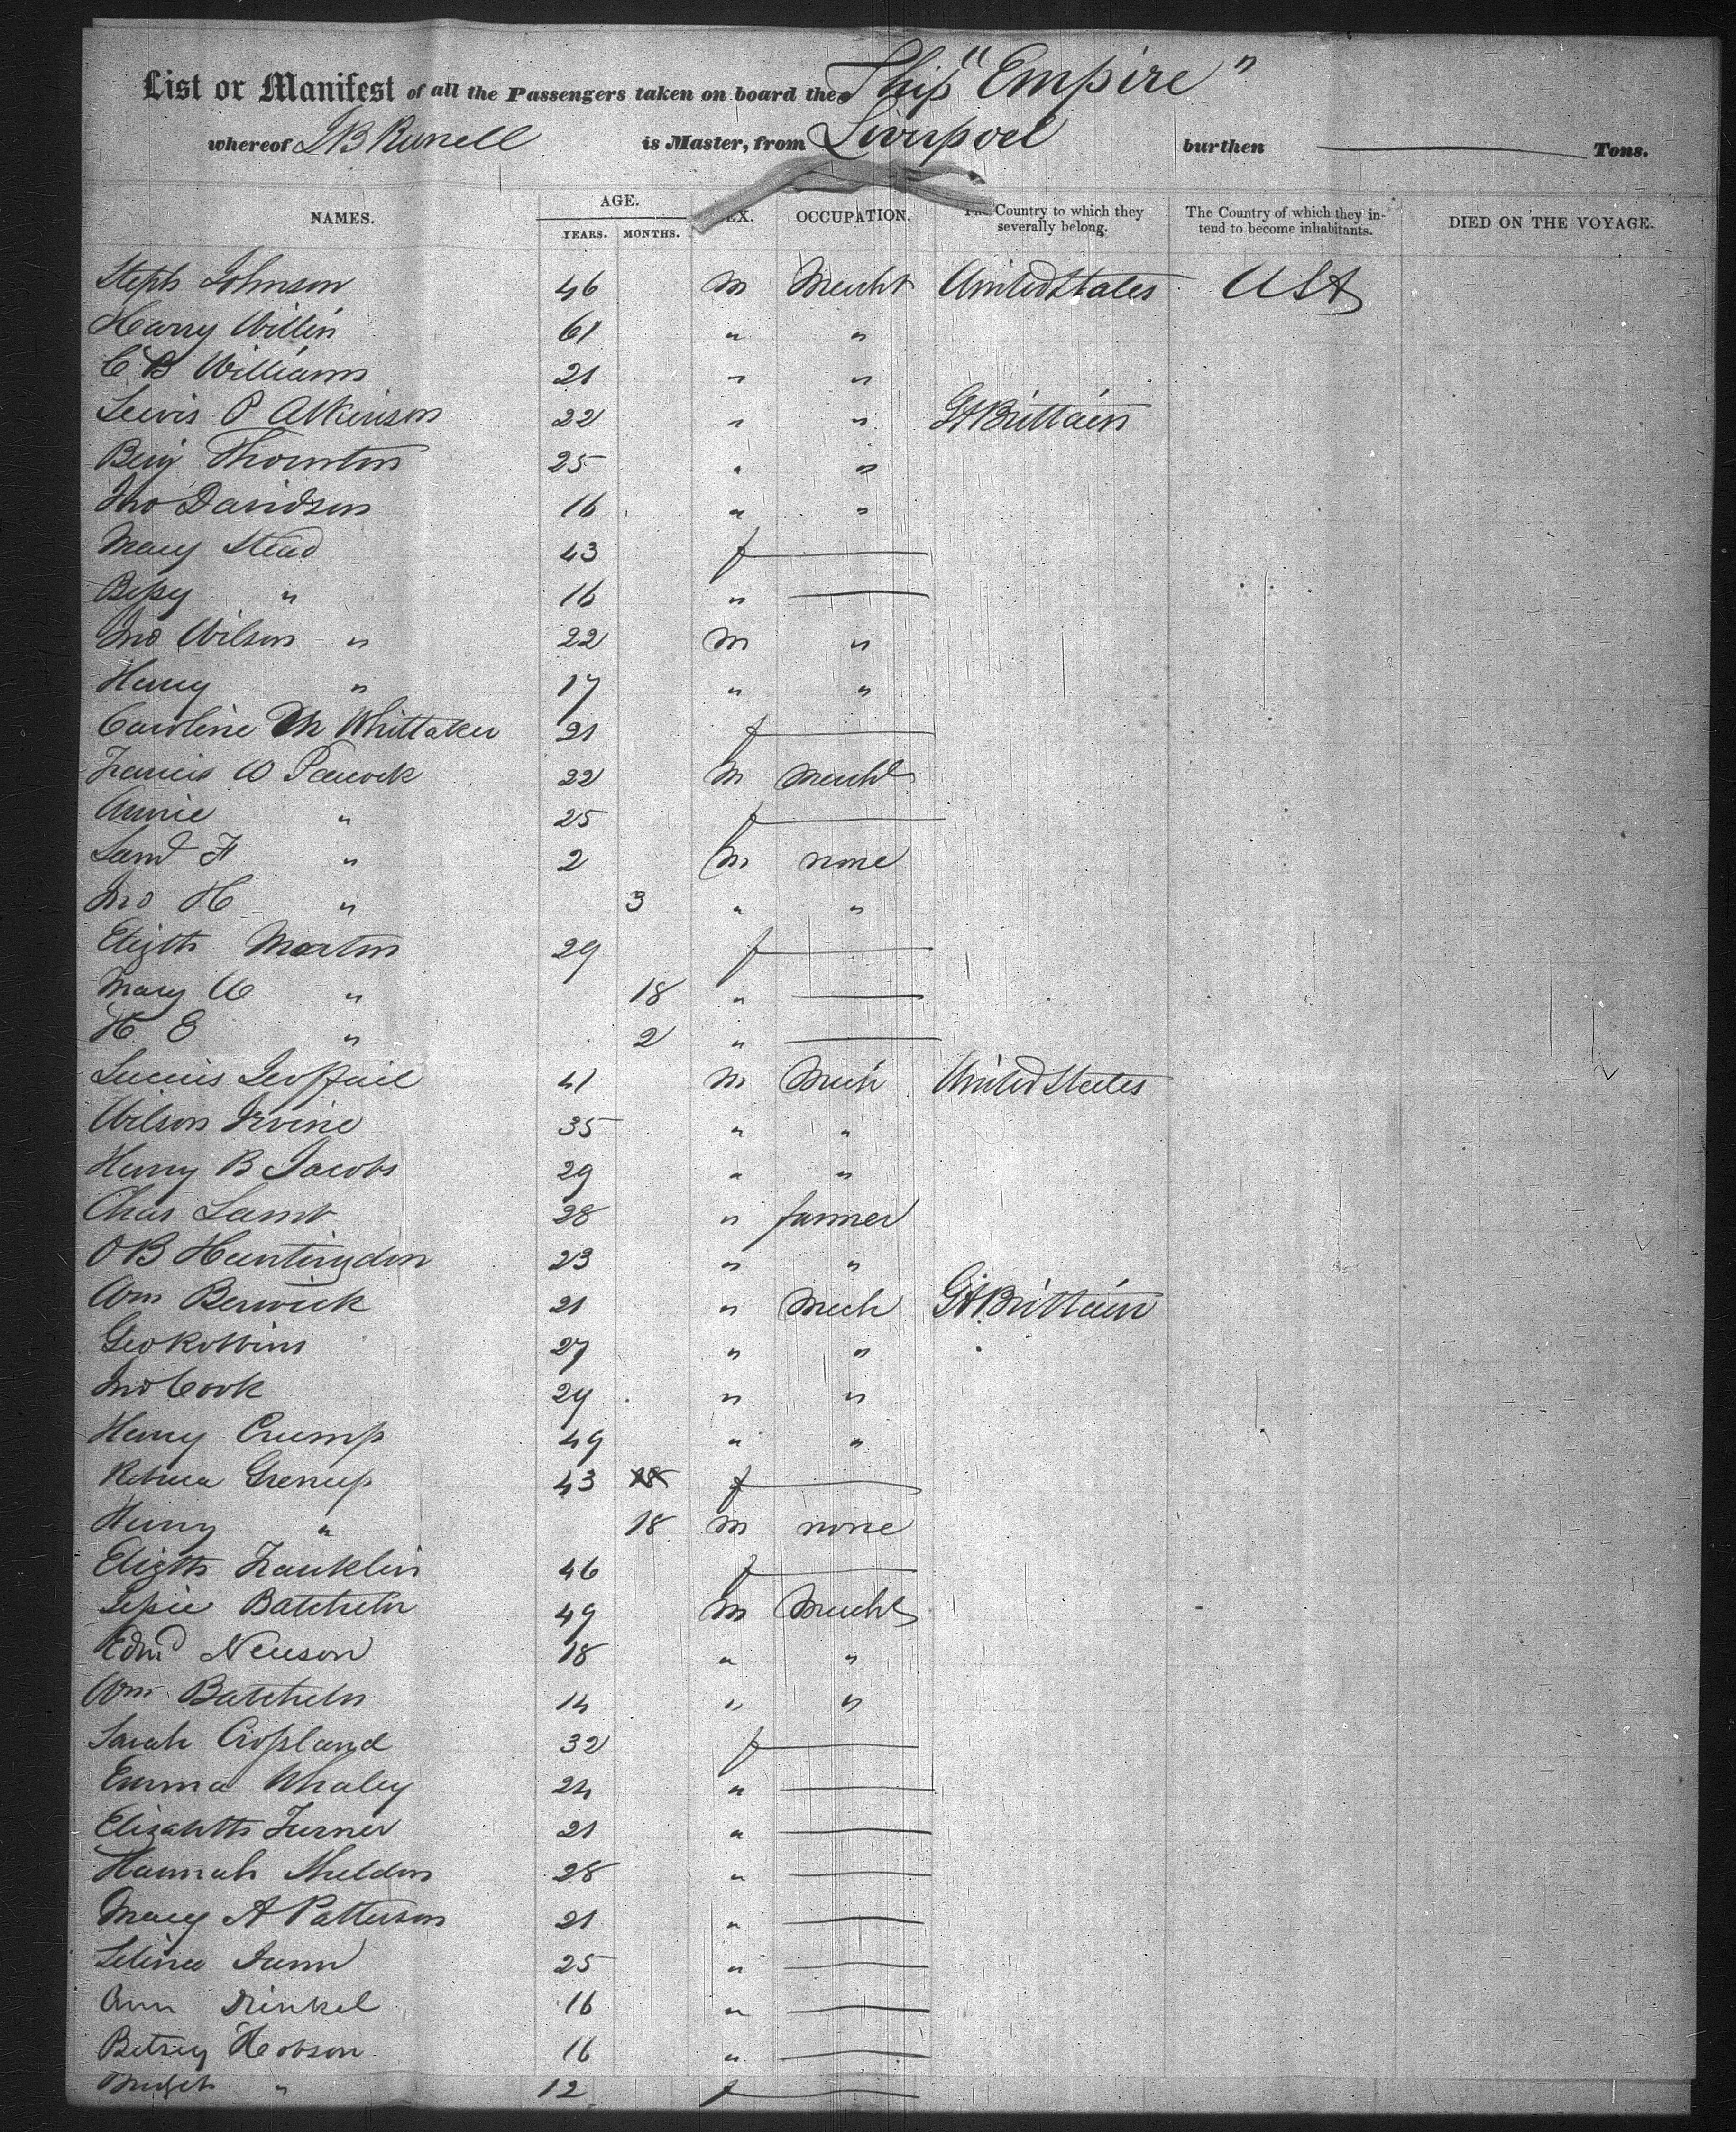 List or Manifest of all the Passengers taken on board the Ship "Empire"
whereof J B Russell is Master, from Liverpool burthen ——— Tons.
NAMES. AGE. YEARS. MONTHS. SEX. OCCUPATION. The Country to which they severally belong. The Country of which they intend to become inhabitants. DIED ON THE VOYAGE.
Steph Johnson 46 M Mercht United States USA
Harry Willin 61 " "
C B Williams 21 " "
Lewis P Atkinson 22 " " Gt Brittain
Benj Thornton 25 " "
Jno Davidson 16 " "
Mary Stead 43 f —
Bessy " 16 " —
Jno Wilson " 22 M "
Henry " 17 " "
Caroline M Whittaker 21 f —
Francis W Peacock 22 M Mercht
Annie " 25 f —
Saml F " 2 M none
Jno H " 3 " "
Elizth Morton 29 f —
Mary " 18 " —
H E " 2 " —
Lucius 41 M Mech United States
Wilson Irvine 35 " "
Henry B Jacobs 29 " "
Chas Lamb 28 " farmer
O B Huntingdon 23 " "
Wm Berwick 21 " Mech Gt Brittain
Geo Robbins 27 " "
Jno Cook 29 " "
Henry Crump 49 " "
Rebecca Grenup 43 f —
Henry " 18 M none
Elizth Franklin 46 f —
Batchelor 49 M Mercht
Edwd Neuson 18 " "
Wm Batchelor 14 " "
Sarah Crossland 32 f —
Emma Whaley 24 " —
Elizabeth Turner 21 " —
Hannah Sheldon 28 " —
Mary A Patterson 21 " —
Selina 25 " —
Ann Drinkel 16 " —
Betsey Hobson 16 " —
Bridget " 12 f —